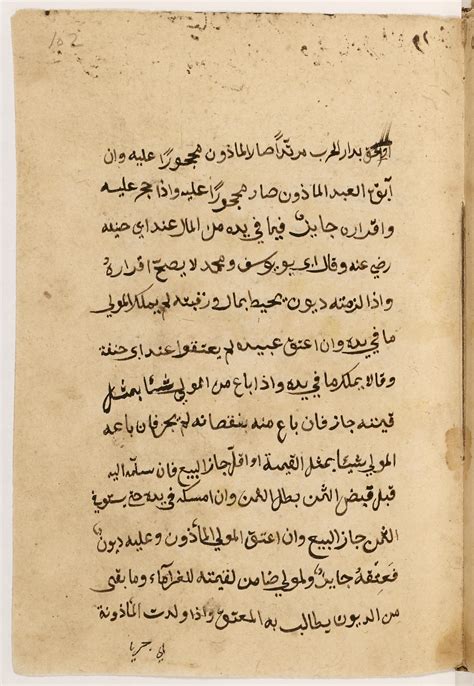 102
لحق بدار الحرب مرتداً صار الماذون محجورًا عليه وان
ابق العبد الماذون صار محجورًا عليه واذا حجر عليه
واقراره جايز فيما في يده من المال عند ابي حنيفه
رضي عنه وقال ابي يوسف ومحمد لا يصحّ اقراره
واذا لزمته ديون يحيط بمال ورقبته لم يملك المولي
ما في يده وان اعتق عبيده لم يعتقوا عند ابي حنفة
وقالا يملك ما في يده واذا باع من المولي شيئا بمثل
قيمته جاز فان باع منه بنقصانه لم يجز فان باعه
المولي شيئا بمثل القيمة او اقلّ جاز البيع فان سلّمه اليه
قبل قبض الثمن بطل الثمن وان امسكه في يده حتى يستوفي
الثمن جاز البيع وان اعتق المولي المأذون وعليه ديون
فعتقه جايز ولمولي ضامن لقيمته للغرمآء وما بقي
من الديون يطالب به المعتق واذا ولدت الماذونة